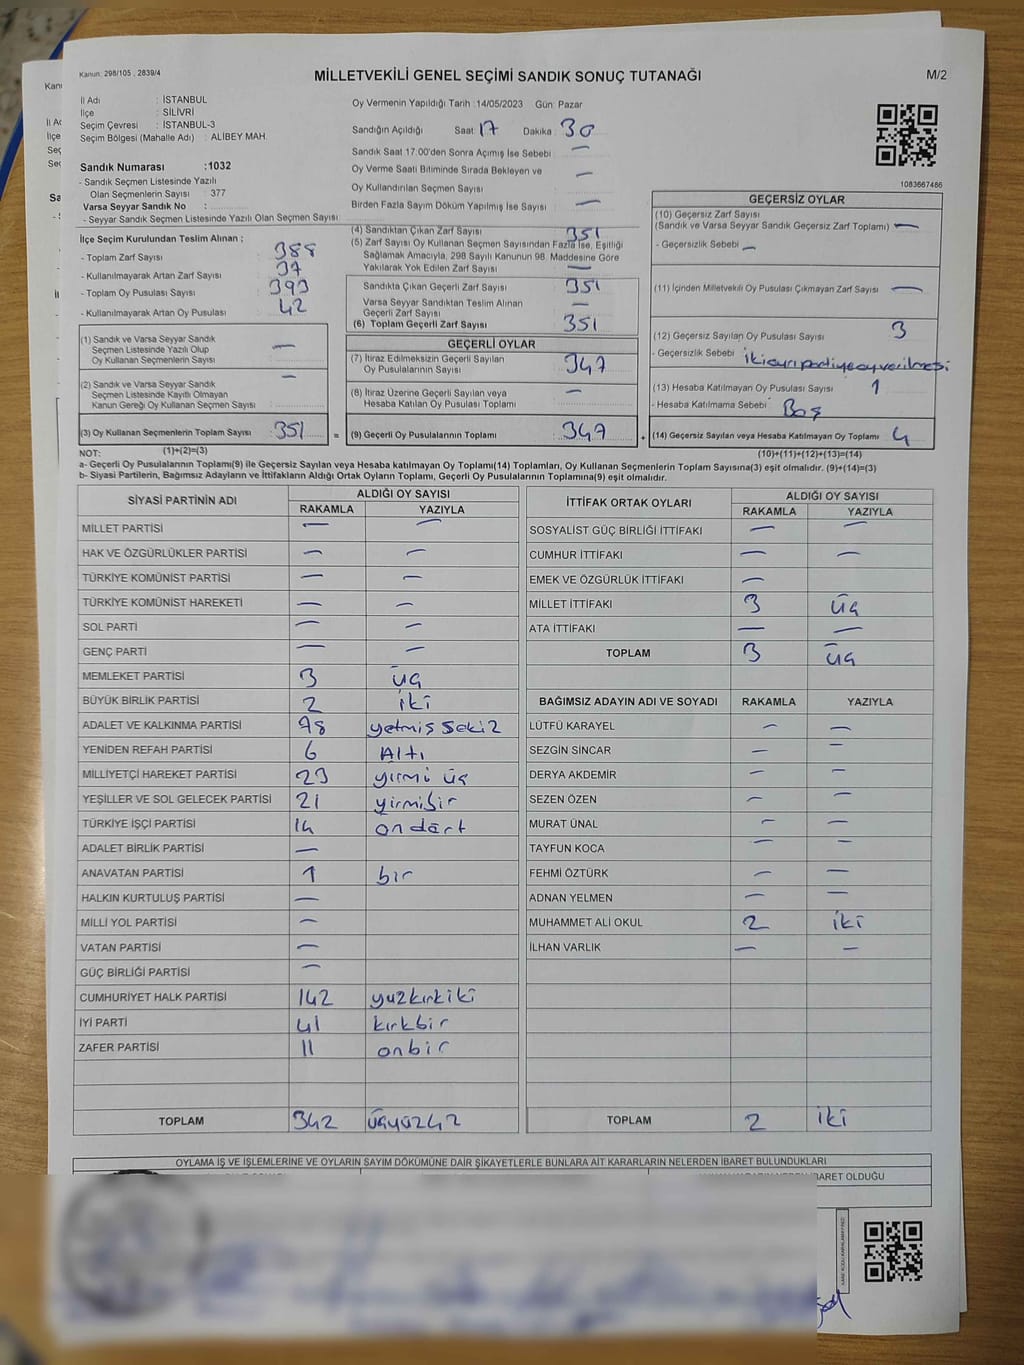 Kanun: 298/105 , 2839/4
MİLLETVEKİLİ GENEL SEÇİMİ SANDIK SONUÇ TUTANAĞI
M/2
İl Adı : İSTANBUL
İlçe : SİLİVRİ
Seçim Çevresi : İSTANBUL-3
Seçim Bölgesi (Mahalle Adı) : ALİBEY MAH.
Sandık Numarası :1032
- Sandık Seçmen Listesinde Yazılı
Olan Seçmenlerin Sayısı : 377
Varsa Seyyar Sandık No :
- Seyyar Sandık Seçmen Listesinde Yazılı Olan Seçmen Sayısı :
Oy Vermenin Yapıldığı Tarih :14/05/2023 Gün: Pazar
Sandığın Açıldığı Saat 17 Dakika : 30
Sandık Saat 17:00'den Sonra Açımış İse Sebebi : —
Oy Verme Saati Bitiminde Sırada Bekleyen ve
Oy Kullandırılan Seçmen Sayısı : —
Birden Fazla Sayım Döküm Yapılmış İse Sayısı : —
1083667486
İlçe Seçim Kurulundan Teslim Alınan :
- Toplam Zarf Sayısı : 388
- Kullanılmayarak Artan Zarf Sayısı : 37
- Toplam Oy Pusulası Sayısı : 393
- Kullanılmayarak Artan Oy Pusulası : 42
(1) Sandık ve Varsa Seyyar Sandık
Seçmen Listesinde Yazılı Olup
Oy Kullanan Seçmenlerin Sayısı : —
(2) Sandık ve Varsa Seyyar Sandık
Seçmen Listesinde Kayıtlı Olmayan
Kanun Gereği Oy Kullanan Seçmen Sayısı : —
(3) Oy Kullanan Seçmenlerin Toplam Sayısı : 351
(4) Sandıktan Çıkan Zarf Sayısı : 351
(5) Zarf Sayısı Oy Kullanan Seçmen Sayısından Fazla İse, Eşitliği
Sağlamak Amacıyla, 298 Sayılı Kanunun 98. Maddesine Göre
Yakılarak Yok Edilen Zarf Sayısı : —
Sandıkta Çıkan Geçerli Zarf Sayısı : 351
Varsa Seyyar Sandıktan Teslim Alınan
Geçerli Zarf Sayısı : —
(6) Toplam Geçerli Zarf Sayısı : 351
GEÇERLİ OYLAR
(7) İtiraz Edilmeksizin Geçerli Sayılan
Oy Pusulalarının Sayısı : 347
(8) İtiraz Üzerine Geçerli Sayılan veya
Hesaba Katılan Oy Pusulası Toplamı : —
= (9) Geçerli Oy Pusulalarının Toplamı : 347
GEÇERSİZ OYLAR
(10) Geçersiz Zarf Sayısı
(Sandık ve Varsa Seyyar Sandık Geçersiz Zarf Toplamı) : —
- Geçersizlik Sebebi : —
(11) İçinden Milletvekili Oy Pusulası Çıkmayan Zarf Sayısı : —
(12) Geçersiz Sayılan Oy Pusulası Sayısı : 3
- Geçersizlik Sebebi : iki ayrı partiye oy verilmesi
(13) Hesaba Katılmayan Oy Pusulası Sayısı : 1
- Hesaba Katılmama Sebebi : Boş
+ (14) Geçersiz Sayılan veya Hesaba Katılmayan Oy Toplamı : 4
NOT: (1)+(2)=(3)
(10)+(11)+(12)+(13)=(14)
a- Geçerli Oy Pusulalarının Toplamı(9) ile Geçersiz Sayılan veya Hesaba katılmayan Oy Toplamı(14) Toplamları, Oy Kullanan Seçmenlerin Toplam Sayısına(3) eşit olmalıdır. (9)+(14)=(3)
b- Siyasi Partilerin, Bağımsız Adayların ve İttifakların Aldığı Ortak Oyların Toplamı, Geçerli Oy Pusulalarının Toplamına(9) eşit olmalıdır.
SİYASİ PARTİNİN ADI ALDIĞI OY SAYISI
RAKAMLA YAZIYLA
MİLLET PARTİSİ — —
HAK VE ÖZGÜRLÜKLER PARTİSİ — —
TÜRKİYE KOMÜNİST PARTİSİ — —
TÜRKİYE KOMÜNİST HAREKETİ — —
SOL PARTİ — —
GENÇ PARTİ — —
MEMLEKET PARTİSİ 3 üç
BÜYÜK BİRLİK PARTİSİ 2 iki
ADALET VE KALKINMA PARTİSİ 78 yetmiş sekiz
YENİDEN REFAH PARTİSİ 6 Altı
MİLLİYETÇİ HAREKET PARTİSİ 23 yirmi üç
YEŞİLLER VE SOL GELECEK PARTİSİ 21 yirmibir
TÜRKİYE İŞÇİ PARTİSİ 14 on dört
ADALET BİRLİK PARTİSİ —
ANAVATAN PARTİSİ 1 bir
HALKIN KURTULUŞ PARTİSİ —
MİLLİ YOL PARTİSİ —
VATAN PARTİSİ —
GÜÇ BİRLİĞİ PARTİSİ —
CUMHURİYET HALK PARTİSİ 142 yüzkırkiki
İYİ PARTİ 41 kırkbir
ZAFER PARTİSİ 11 onbir
TOPLAM 342 üçyüz42
İTTİFAK ORTAK OYLARI ALDIĞI OY SAYISI
RAKAMLA YAZIYLA
SOSYALIST GÜÇ BİRLİĞİ İTTİFAKI — —
CUMHUR İTTİFAKI — —
EMEK VE ÖZGÜRLÜK İTTİFAKI —
MİLLET İTTİFAKI 3 üç
ATA İTTİFAKI — —
TOPLAM 3 üç
BAĞIMSIZ ADAYIN ADI VE SOYADI RAKAMLA YAZIYLA
LÜTFÜ KARAYEL — —
SEZGİN SİNCAR — —
DERYA AKDEMİR — —
SEZEN ÖZEN — —
MURAT ÜNAL — —
TAYFUN KOCA — —
FEHMİ ÖZTÜRK — —
ADNAN YELMEN — —
MUHAMMET ALİ OKUL 2 iki
İLHAN VARLIK — —
TOPLAM 2 iki
OYLAMA İŞ VE İŞLEMLERİNE VE OYLARIN SAYIM DÖKÜMÜNE DAİR ŞİKAYETLERLE BUNLARA AİT KARARLARIN NELERDEN İBARET BULUNDUKLARI
İBARET OLDUĞU